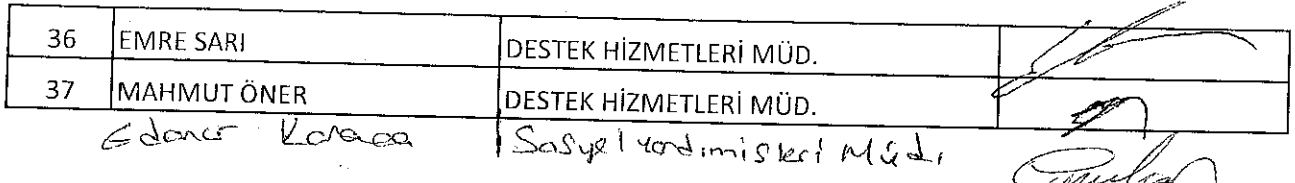 36 EMRE SARI DESTEK HİZMETLERİ MÜD.
37 MAHMUT ÖNER DESTEK HİZMETLERİ MÜD.
Sosyal yardım işleri Müd.